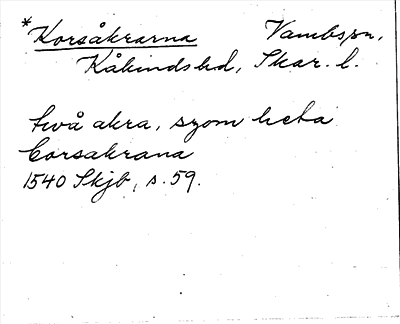 *Korsåkrarna Vambs sn,
Kåkinds hd, Skar. l.
två akra, szom heta
Corsakrana
1540 Skjb, s. 59.